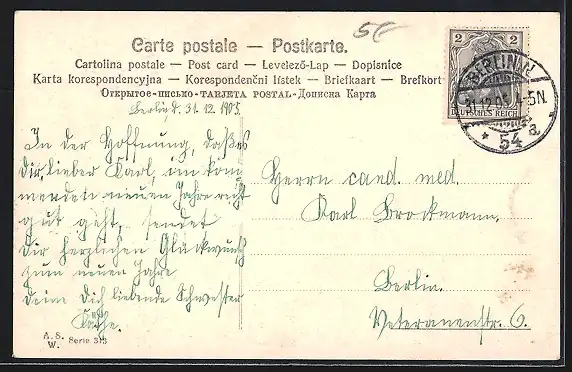 5
Carte postale — Postkarte.
Cartolina postale — Post card — Levelező-Lap — Dopisnice
Karta korespondencyjna — Korespondenční lístek — Briefkaart — Brefkort
Открытое-письмо-TARJETA POSTAL-Дописна Карта
2 2
DEUTSCHES REICH
BERLIN N
31.12.05. 4-5N.
* 54 a
Berlin, d. 31. 12. 1905.
In der Hoffnung, daß es
Dir, lieber Karl, im kom
menden neuen Jahre recht
gut geht, sendet
Dir herzlichen Glückwunsch
zum neuen Jahre
Deine Dich liebende Schwester
Käthe.
Herrn cand. med.
Karl Brockmann.
Berlin.
Veteranenstr. 6.
A. S.
W. Serie 313